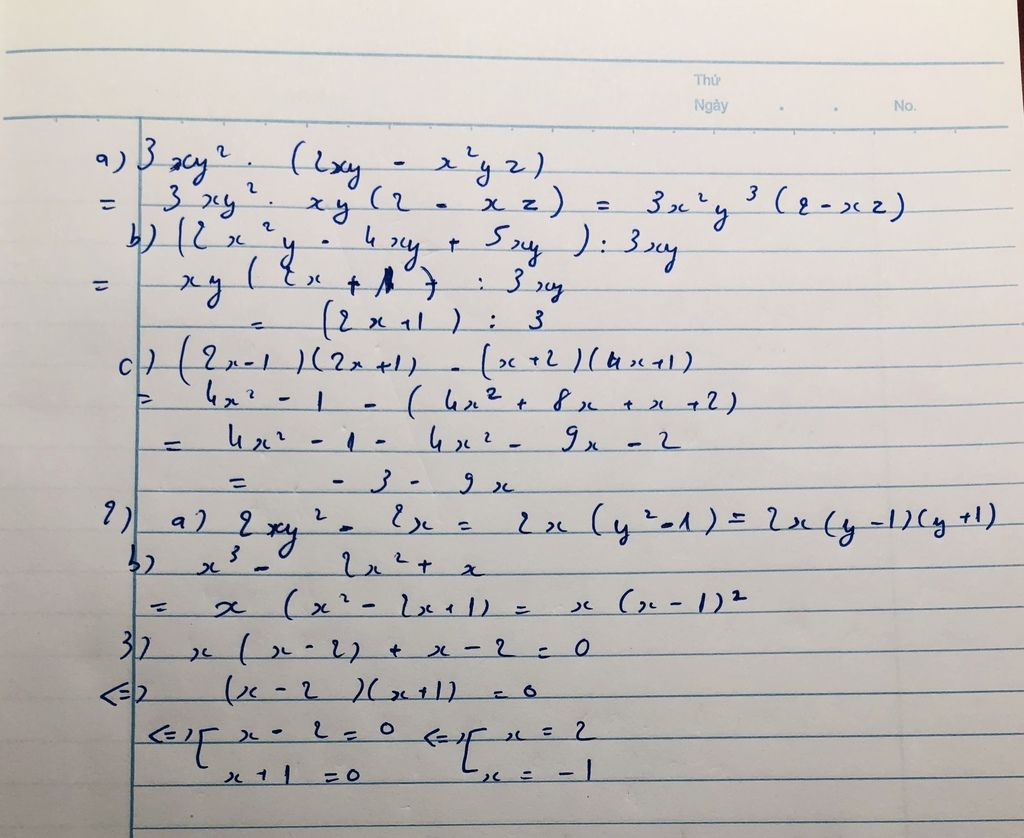 Thứ
Ngày . . No.
a) 3xy². (2xy - x²yz)
= 3xy². xy(2 - xz) = 3x²y³(2-xz)
b) (2x²y - 4xy + 5xy) : 3xy
= xy (2x + 1) : 3xy
= (2x+1) : 3
c) (2x-1)(2x+1) - (x+2)(4x+1)
= 4x² - 1 - (4x² + 8x + x + 2)
= 4x² - 1 - 4x² - 9x - 2
= - 3 - 9x
2) a) 2xy² - 2x = 2x (y²-1) = 2x(y-1)(y+1)
b) x³ - 2x² + x
= x (x² - 2x+1) = x (x-1)²
3) x (x-2) + x-2 = 0
<=> (x-2)(x+1) = 0
<=> [ x - 2 = 0 <=> [ x = 2
x+1 = 0 x = -1